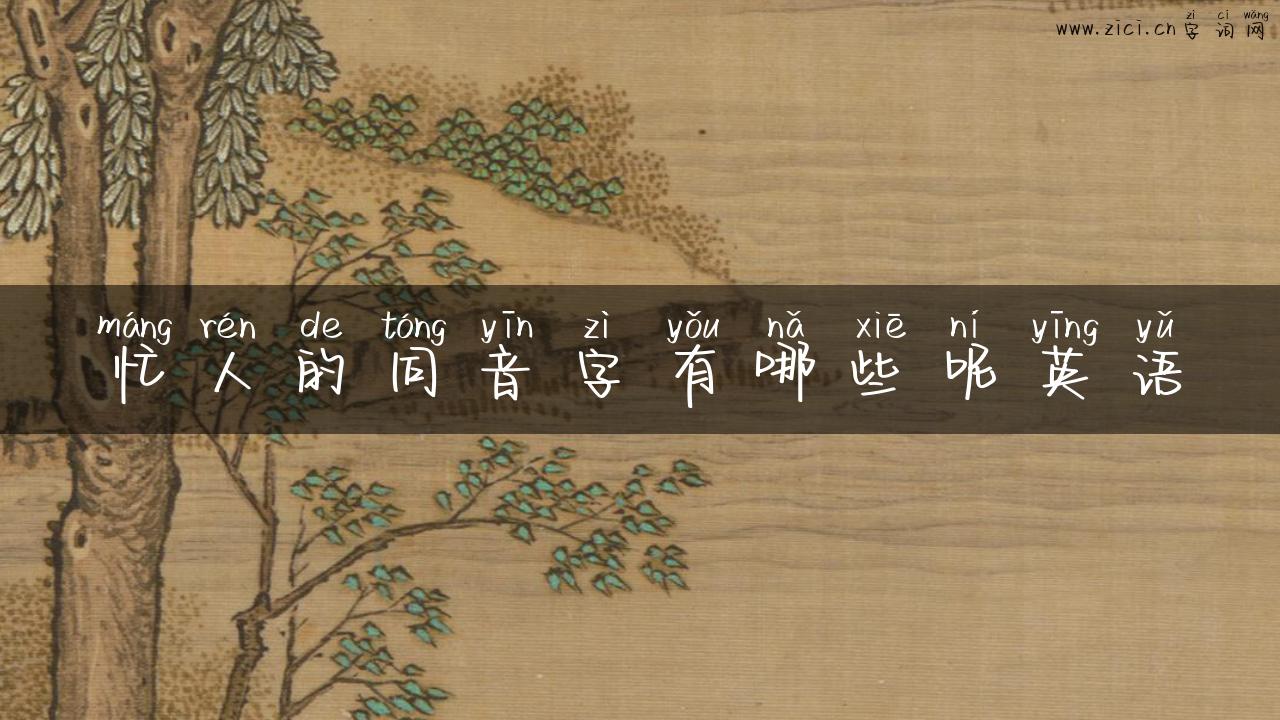 zì cí wǎng
www.zici.cn 字词网
máng rén de tóng yīn zì yǒu nǎ xiē ní yīng yǔ
忙人的同音字有哪些呢英语